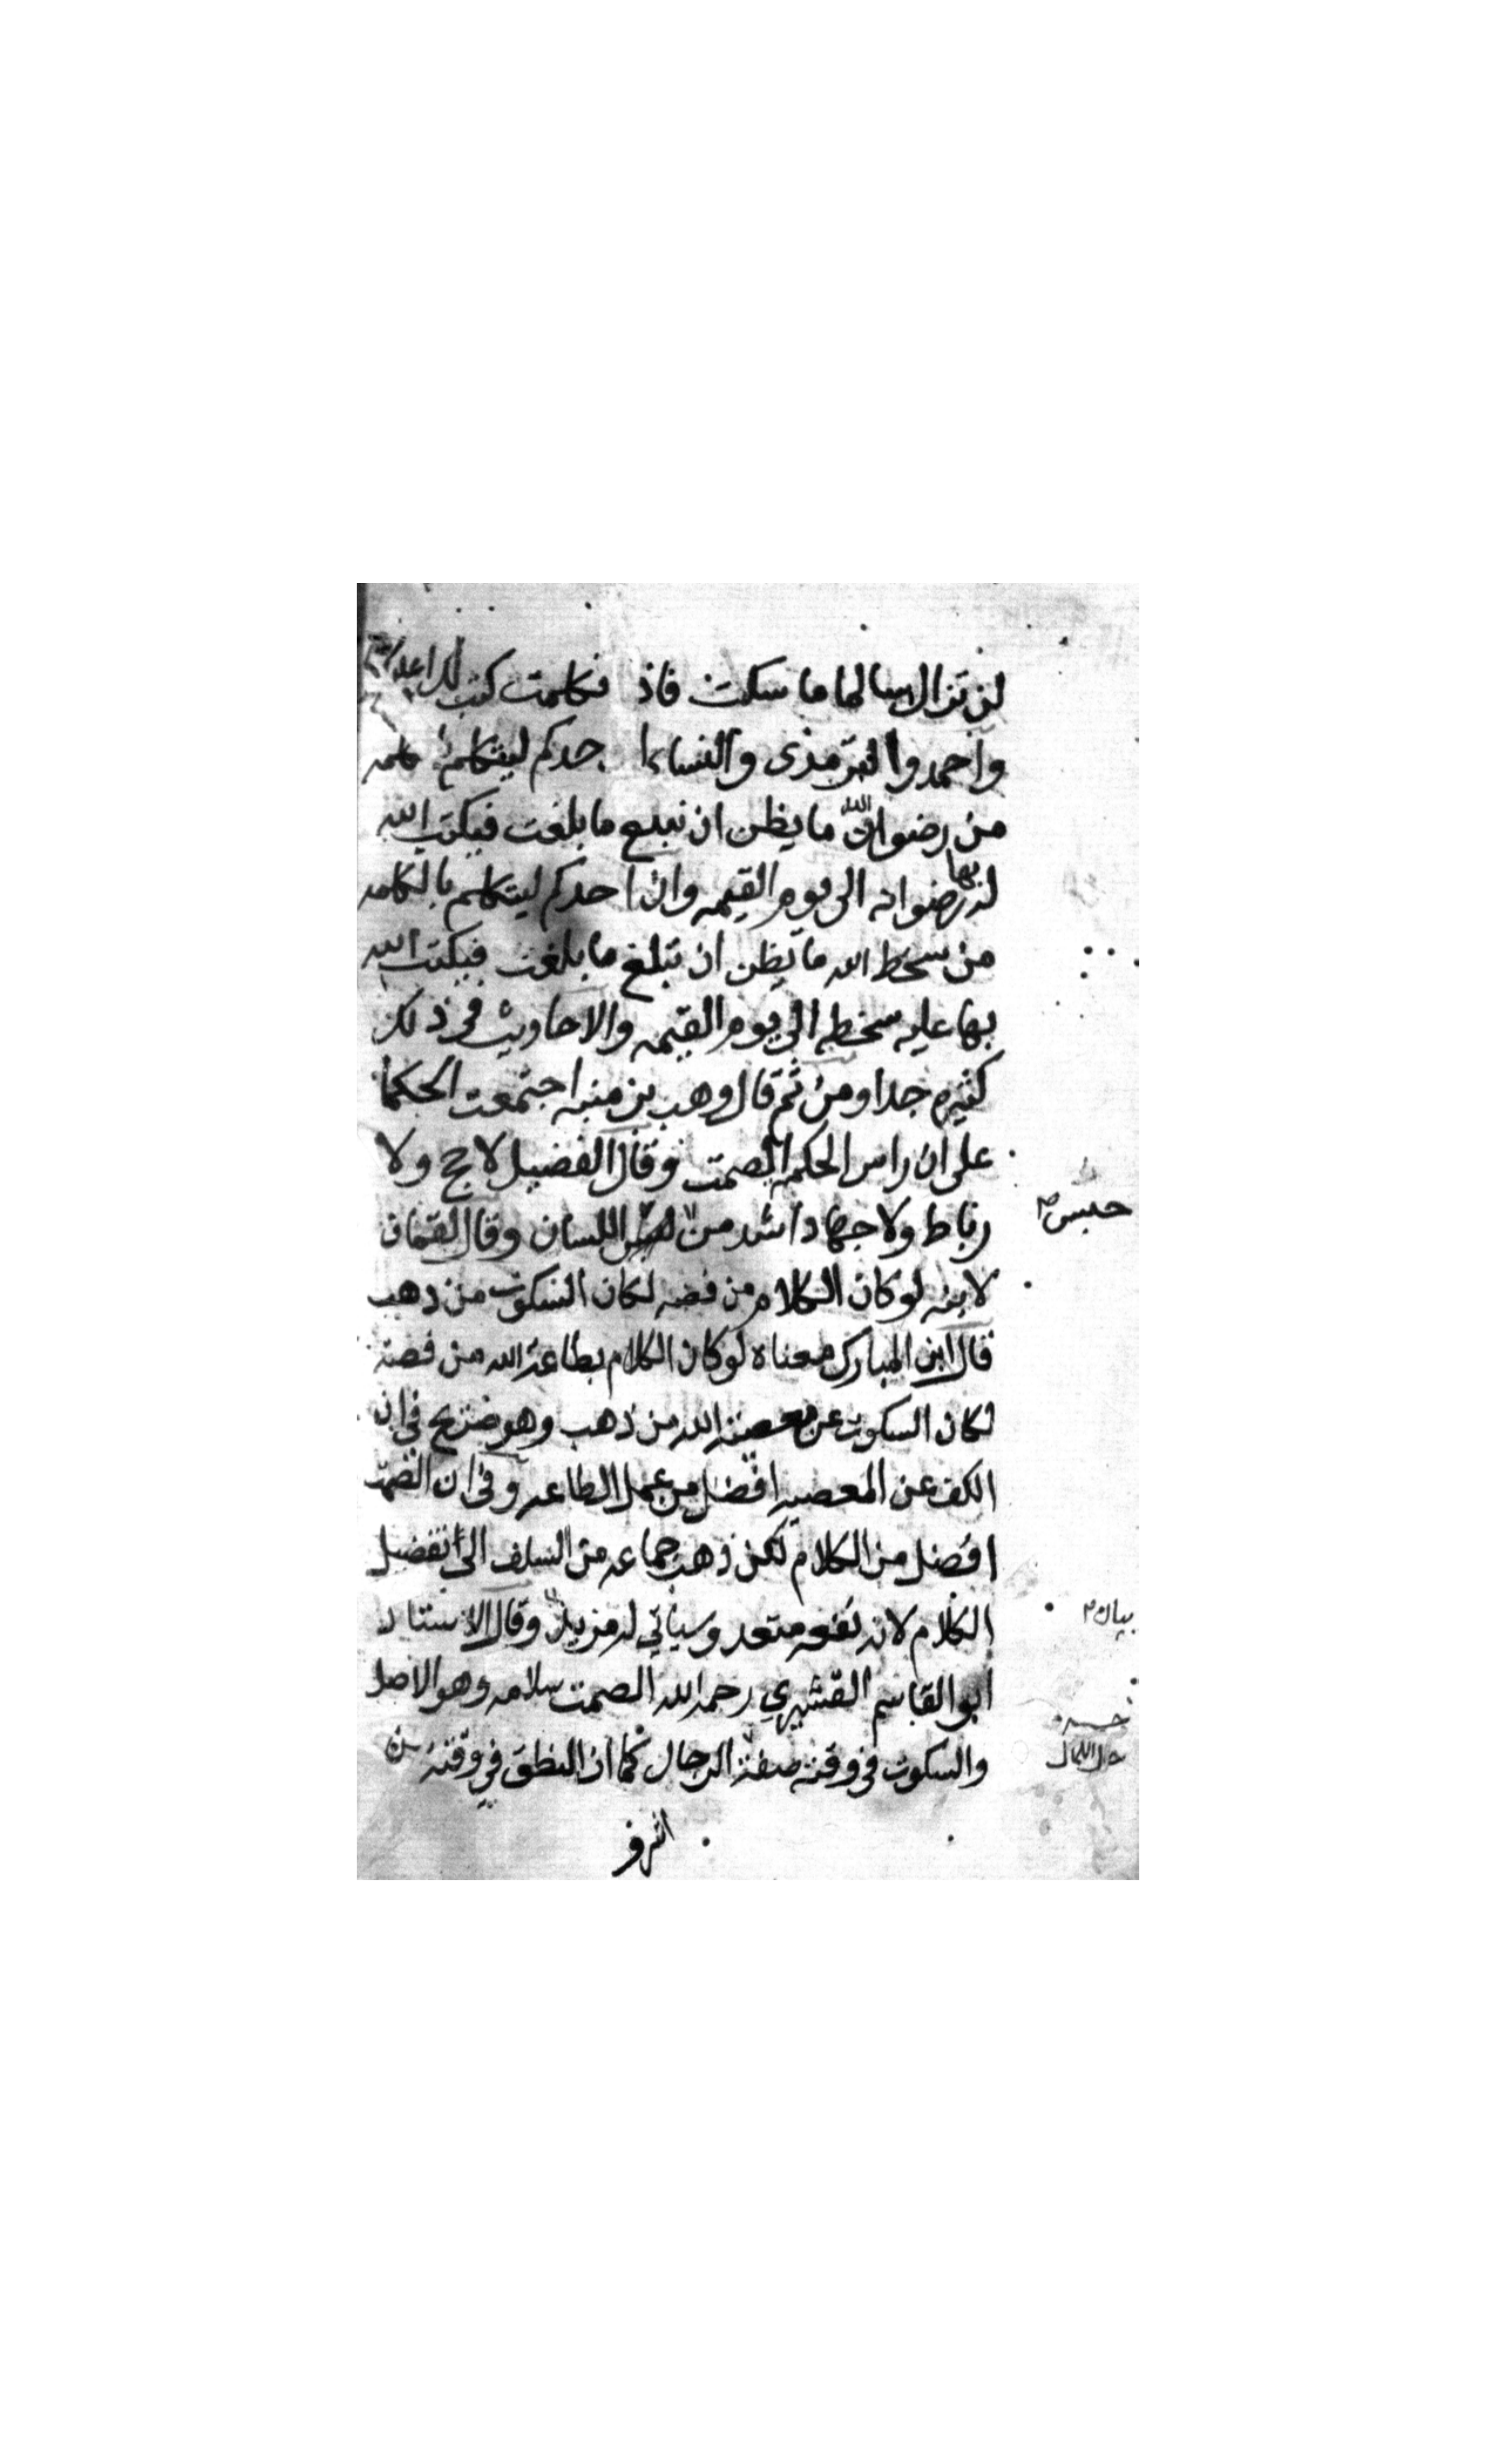 لن تزال سالما ما سكت فاذ تكلمت كتب لك او عليك
واحمد والترمذى والنساءا حدكم ليتكلم بكلمه
من رضوان الله ما يظن ان تبلغ ما بلغت فيكتب الله
له بها رضوانه الى يوم القيمه وان احدكم ليتكلم بالكلمه
من سخط الله ما يظن ان تبلغ ما بلغت فيكتب الله
بها عليه سخطه الى يوم القيمه والاحاديث في ذلك
كثيره جدا ومن ثم قال وهب بن منبه اجتمعت الحكما
على ان راس الحكمه الصمت وقال الفضيل لا حج ولا
رباط ولا جهاد اشد من اللسان وقال لقمان
حبس
لابنه لو كان الكلام من فضه لكان السكوت من ذهب
قال ابن المبارك معناه لو كان الكلام بطاعة الله من فضة
لكان السكوت عن معصية الله من ذهب وهو صريح في ان
الكف عن المعصيه افضل من عمل الطاعه وفي ان الصمت
افضل من الكلام لكن ذهب جماعه من السلف الى تفضيل
الكلام لان نفعه متعد وسياتي له مزيد وقال الاستاد
بيان
ابو القاسم القشيري رحمه الله الصمت سلامه وهو الاصل
والسكوت في وقته صفة الرجال كما ان النطق في وقته من
اشرف